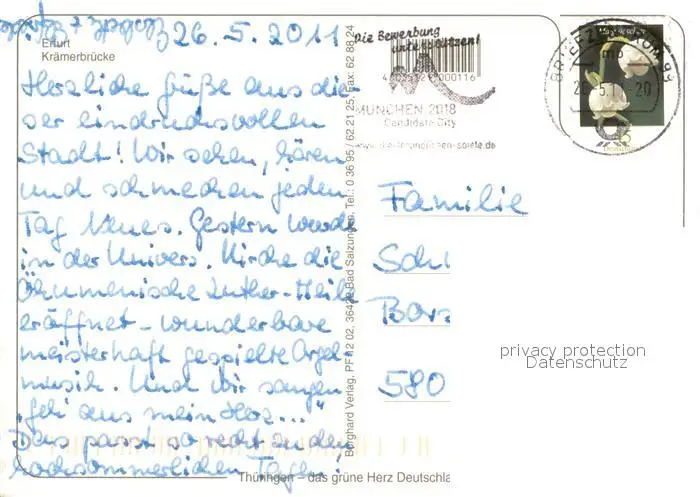 26.5.2011
Erfurt
Krämerbrücke
Herzliche Grüße aus die-
ser eindrucksvollen
Stadt! Wir sehen, hören
und schmecken jeden
Tag Neues. Gestern wurde
in der Univers. Kirche die
Ökumenische Luther-Meile
eröffnet - wunderbare
meisterhaft gespielte Orgel
musik. Und wir sangen
"Geh aus mein Herz..."
Das passt so recht zu den
hochsommerlichen Tagen!
Thüringen – das grüne Herz Deutschla
Borghard Verlag, PF 12 02, 36422 Bad Salzungen, Tel.: 0 36 95 / 62 21 25, Fax: 62 88 24
Die Bewerbung
unterstützen!
MÜNCHEN 2018
Candidate City
BRIEFZENTRUM 99
Familie
Sch
Bor
580
privacy protection
Datenschutz